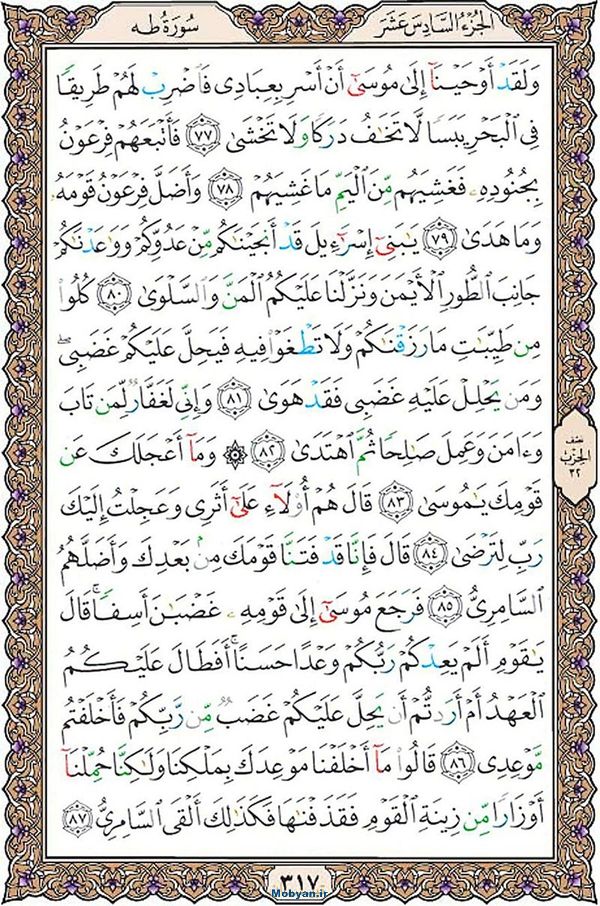 الجُزْءُ السَّادِسَ عَشَرَ
سُورَةُ طه
وَلَقَدْ أَوْحَيْنَآ إِلَىٰ مُوسَىٰٓ أَنْ أَسْرِ بِعِبَادِى فَٱضْرِبْ لَهُمْ طَرِيقًا
فِى ٱلْبَحْرِ يَبَسًا لَّا تَخَـٰفُ دَرَكًا وَلَا تَخْشَىٰ ٧٧ فَأَتْبَعَهُمْ فِرْعَوْنُ
بِجُنُودِهِۦ فَغَشِيَهُم مِّنَ ٱلْيَمِّ مَا غَشِيَهُمْ ٧٨ وَأَضَلَّ فِرْعَوْنُ قَوْمَهُۥ
وَمَا هَدَىٰ ٧٩ يَـٰبَنِىٓ إِسْرَٰٓءِيلَ قَدْ أَنجَيْنَـٰكُم مِّنْ عَدُوِّكُمْ وَوَٰعَدْنَـٰكُمْ
جَانِبَ ٱلطُّورِ ٱلْأَيْمَنَ وَنَزَّلْنَا عَلَيْكُمُ ٱلْمَنَّ وَٱلسَّلْوَىٰ ٨٠ كُلُوا۟
مِن طَيِّبَـٰتِ مَا رَزَقْنَـٰكُمْ وَلَا تَطْغَوْا۟ فِيهِ فَيَحِلَّ عَلَيْكُمْ غَضَبِى ۖ
وَمَن يَحْلِلْ عَلَيْهِ غَضَبِى فَقَدْ هَوَىٰ ٨١ وَإِنِّى لَغَفَّارٌ لِّمَن تَابَ
وَءَامَنَ وَعَمِلَ صَـٰلِحًا ثُمَّ ٱهْتَدَىٰ ٨٢ ۞ وَمَآ أَعْجَلَكَ عَن
نصف
الحِزْبِ
٣٢
قَوْمِكَ يَـٰمُوسَىٰ ٨٣ قَالَ هُمْ أُو۟لَآءِ عَلَىٰٓ أَثَرِى وَعَجِلْتُ إِلَيْكَ
رَبِّ لِتَرْضَىٰ ٨٤ قَالَ فَإِنَّا قَدْ فَتَنَّا قَوْمَكَ مِنۢ بَعْدِكَ وَأَضَلَّهُمُ
ٱلسَّامِرِىُّ ٨٥ فَرَجَعَ مُوسَىٰٓ إِلَىٰ قَوْمِهِۦ غَضْبَـٰنَ أَسِفًا ۚ قَالَ
يَـٰقَوْمِ أَلَمْ يَعِدْكُمْ رَبُّكُمْ وَعْدًا حَسَنًا ۚ أَفَطَالَ عَلَيْكُمُ
ٱلْعَهْدُ أَمْ أَرَدتُّمْ أَن يَحِلَّ عَلَيْكُمْ غَضَبٌ مِّن رَّبِّكُمْ فَأَخْلَفْتُم
مَّوْعِدِى ٨٦ قَالُوا۟ مَآ أَخْلَفْنَا مَوْعِدَكَ بِمَلْكِنَا وَلَـٰكِنَّا حُمِّلْنَآ
أَوْزَارًا مِّن زِينَةِ ٱلْقَوْمِ فَقَذَفْنَـٰهَا فَكَذَٰلِكَ أَلْقَى ٱلسَّامِرِىُّ ٨٧
٣١٧
Mobyan.ir